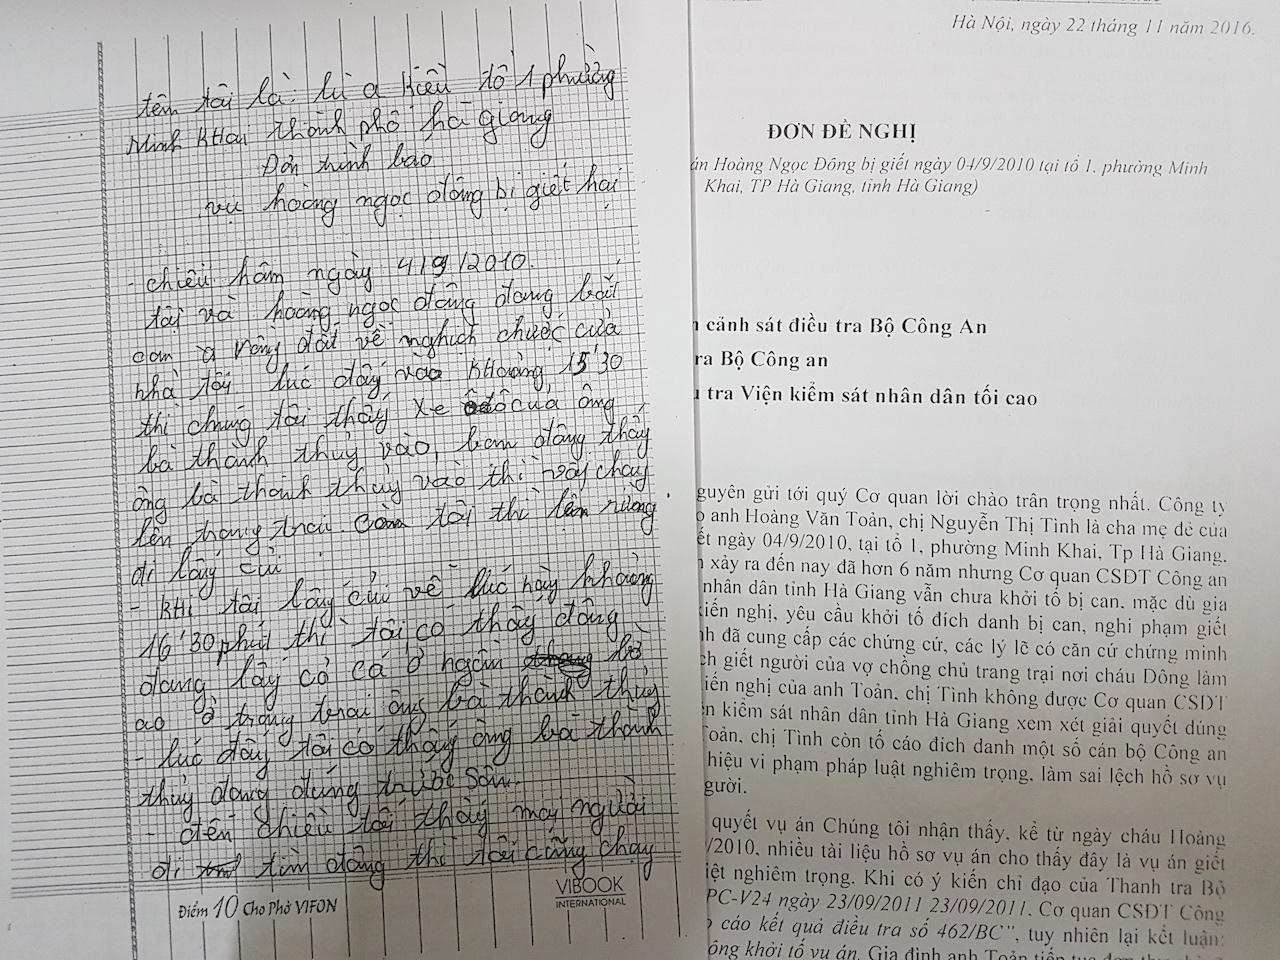 tên tôi là: lù a kiều tổ 1 phường
Minh Khai thành phố hà giang
Đơn trình báo
vụ hoàng ngọc đông bị giết hại
- chiều hôm ngày 4/9/2010.
tôi và hoàng ngọc đông đang bắt
con ạ vòng đất về nghịch chuếc của
nhà tôi lúc đấy vào khoảng 15'30
thì chúng tôi thấy xe ôtô của ông
bà thành thuỷ vào, bạn đông thấy
ông bà thành thủy vào thì vội chạy
lên trang trai. còn tôi thì lên rừng
đi lấy củi
- khi tôi lấy củi về lúc này khoảng
16'30 phút thì tôi có thấy đông
đang lấy cỏ cá ở ngần bờ
ao ở trong trai ông bà thành thủy
- lúc đấy tôi có thấy ông bà thành
thủy đang đứng trước sân.
- đến chiều tôi thấy mọy người
đi tìm đông thì tôi cũng chạy
Điểm 10 Cho Phở VIFON
VIBOOK
INTERNATIONAL
Hà Nội, ngày 22 tháng 11 năm 2016.
ĐƠN ĐỀ NGHỊ
án Hoàng Ngọc Đông bị giết ngày 04/9/2010 tại tổ 1, phường Minh
Khai, TP Hà Giang, tỉnh Hà Giang)
cảnh sát điều tra Bộ Công An
ra Bộ Công an
tra Viện kiểm sát nhân dân tối cao
guyên gửi tới quý Cơ quan lời chào trân trọng nhất. Công ty
anh Hoàng Văn Toản, chị Nguyễn Thị Tình là cha mẹ đẻ của
ết ngày 04/9/2010, tại tổ 1, phường Minh Khai, Tp Hà Giang.
xảy ra đến nay đã hơn 6 năm nhưng Cơ quan CSĐT Công an
nhân dân tỉnh Hà Giang vẫn chưa khởi tố bị can, mặc dù gia
iến nghị, yêu cầu khởi tố đích danh bị can, nghi phạm giết
nh đã cung cấp các chứng cứ, các lý lẽ có căn cứ chứng minh
ch giết người của vợ chồng chủ trang trại nơi cháu Đông làm
iến nghị của anh Toản, chị Tình không được Cơ quan CSĐT
n kiểm sát nhân dân tỉnh Hà Giang xem xét giải quyết đúng
oản, chị Tình còn tố cáo đích danh một số cán bộ Công an
hiệu vi phạm pháp luật nghiêm trọng, làm sai lệch hồ sơ vụ
gười.
quyết vụ án Chúng tôi nhận thấy, kể từ ngày cháu Hoàng
/2010, nhiều tài liệu hồ sơ vụ án cho thấy đây là vụ án giết
iệt nghiêm trọng. Khi có ý kiến chỉ đạo của Thanh tra Bộ
PC-V24 ngày 23/09/2011 23/09/2011, Cơ quan CSĐT Công
o cáo kết quả điều tra số 462/BC", tuy nhiên lại kết luận:
ông khởi tố vụ án. Gia đình anh Toản tiếp tục